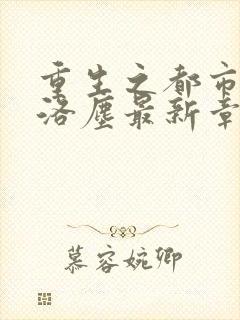 重生之都市
洛尘最新章
慕容婉卿